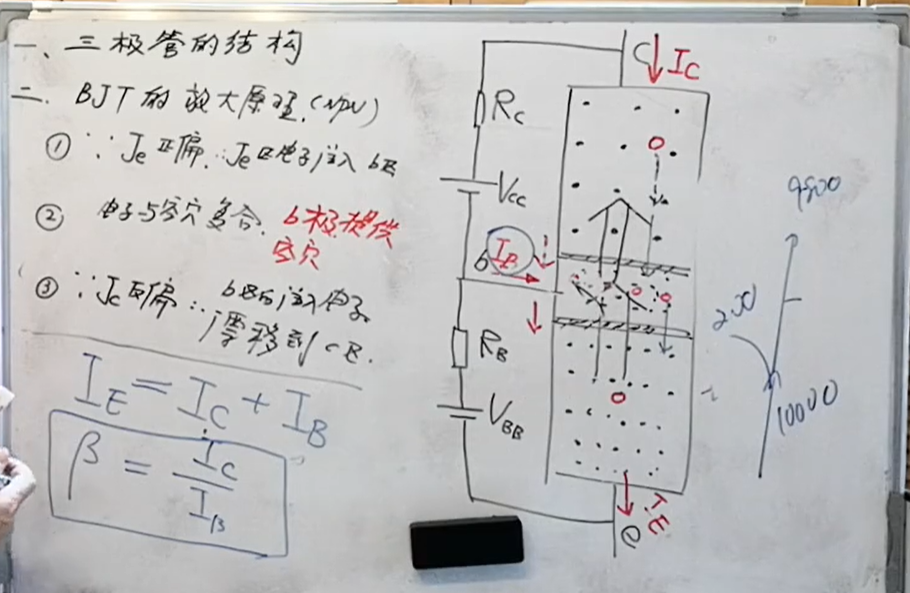 一、三极管的结构
二、BJT的放大原理.(NPN)
① ∵Je正偏 ∴Je区电子注入b区
② 电子与空穴复合. b极提供空穴
③ ∵Jc反偏 ∴b区的注入电子漂移到c区.
I_E = I_C + I_B
β = I_C / I_B
C
I_C
R_C
V_CC
b
I_B
R_B
V_BB
e
I_E
9800
200
10000